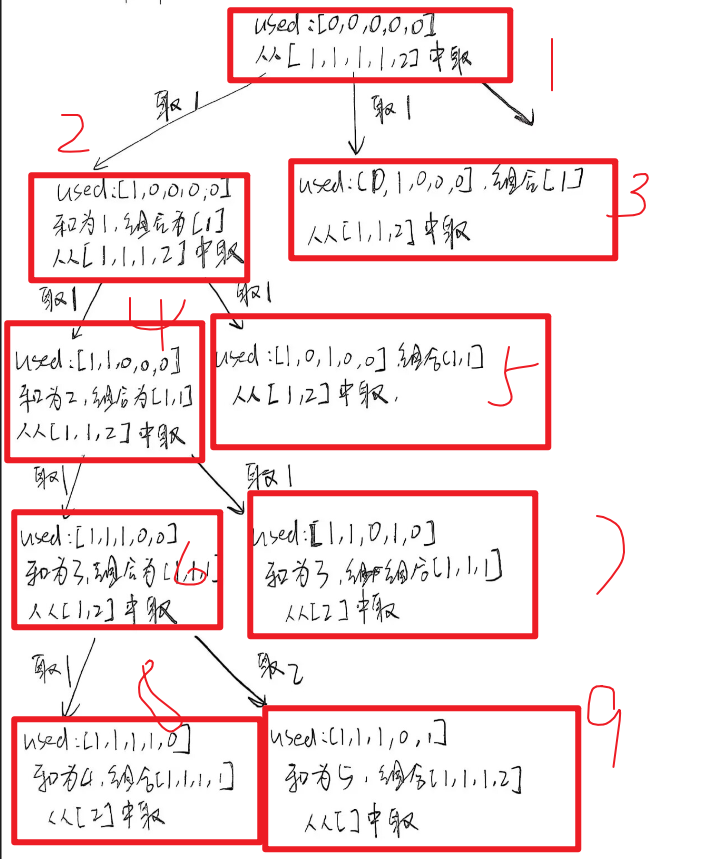 used:[0,0,0,0,0]
从[1,1,1,1,2]中取
1
取1
取1
2
used:[1,0,0,0,0]
和为1,组合为[1]
从[1,1,1,2]中取
used:[0,1,0,0,0],组合[1]
从[1,1,2]中取
3
取1
取1
4
used:[1,1,0,0,0]
和为2,组合为[1,1]
从[1,1,2]中取
used:[1,0,1,0,0]组合[1,1]
从[1,2]中取.
5
取1
取1
used:[1,1,1,0,0]
和为3,组合为[1,1,1]
从[1,2]中取
6
used:[1,1,0,1,0]
和为3,组合[1,1,1]
从[2]中取
7
取1
取2
8
used:[1,1,1,1,0]
和为4,组合[1,1,1,1]
从[2]中取
used:[1,1,1,0,1]
和为5,组合[1,1,1,2]
从[]中取
9